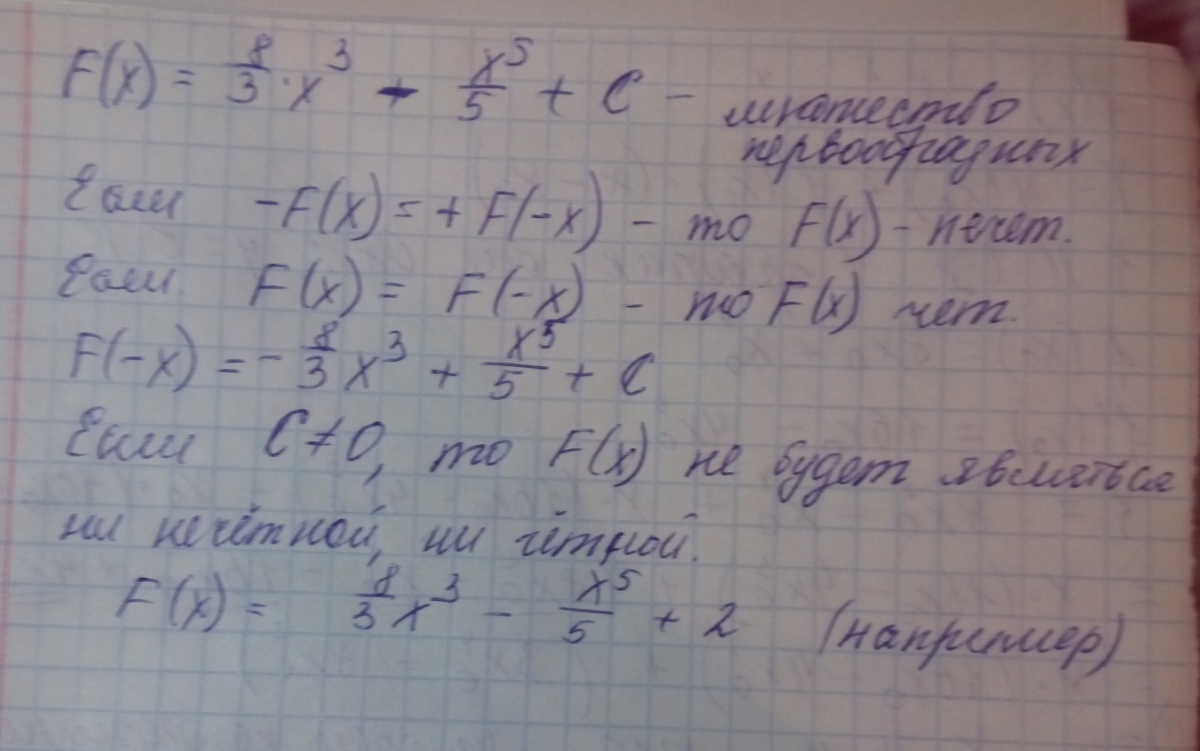 F(x) = 8/3 · x³ - x⁵/5 + C - множество
первообразных
Если -F(x) = + F(-x) - то F(x) - нечет.
Если F(x) = F(-x) - то F(x) чет.
F(-x) = - 8/3 x³ + x⁵/5 + C
Если C ≠ 0, то F(x) не будет являться
ни нечётной, ни чётной.
F(x) = 8/3 x³ - x⁵/5 + 2 (например)